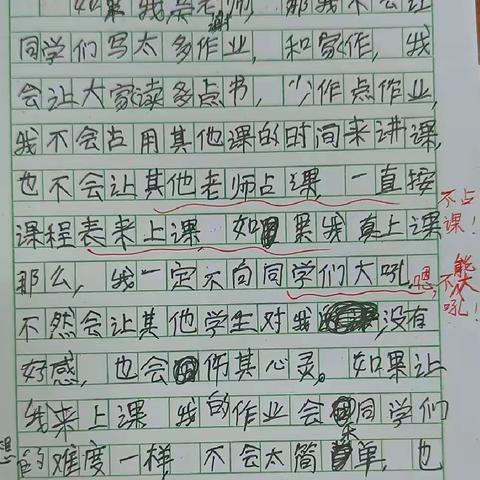 如果我是老师，那我不会让
同学们写太多作业，和家作，我
会让大家读多点书，少作点作业，
我不会占用其他课的时间来讲课，
也不会让其他老师占课，一直按
不占课！
课程表来上课，如果我真上课
那么，我一定不向同学们大吼，
嗯，不能大吼！
不然会让其他学生对我没有
好感，也会伤其心灵。如果让
我来上课 我的作业会同学们
想的难度一样，不会太简单，也